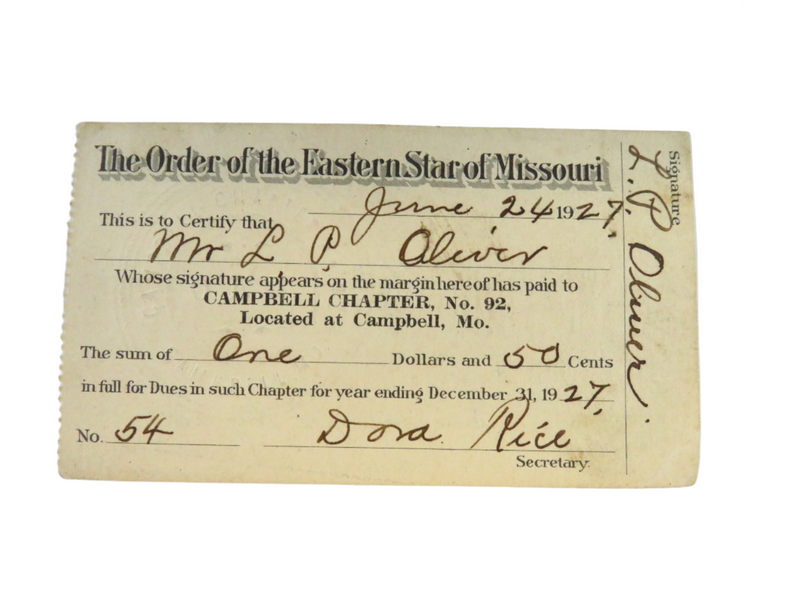 The Order of the Eastern Star of Missouri
June 24 1927.
This is to Certify that
Mr L. P. Oliver
Whose signature appears on the margin hereof has paid to
CAMPBELL CHAPTER, No. 92,
Located at Campbell, Mo.
The sum of One Dollars and 50 Cents
in full for Dues in such Chapter for year ending December 31, 1927.
No. 54 Dora Rice
Secretary.
Signature
L. P. Oliver.